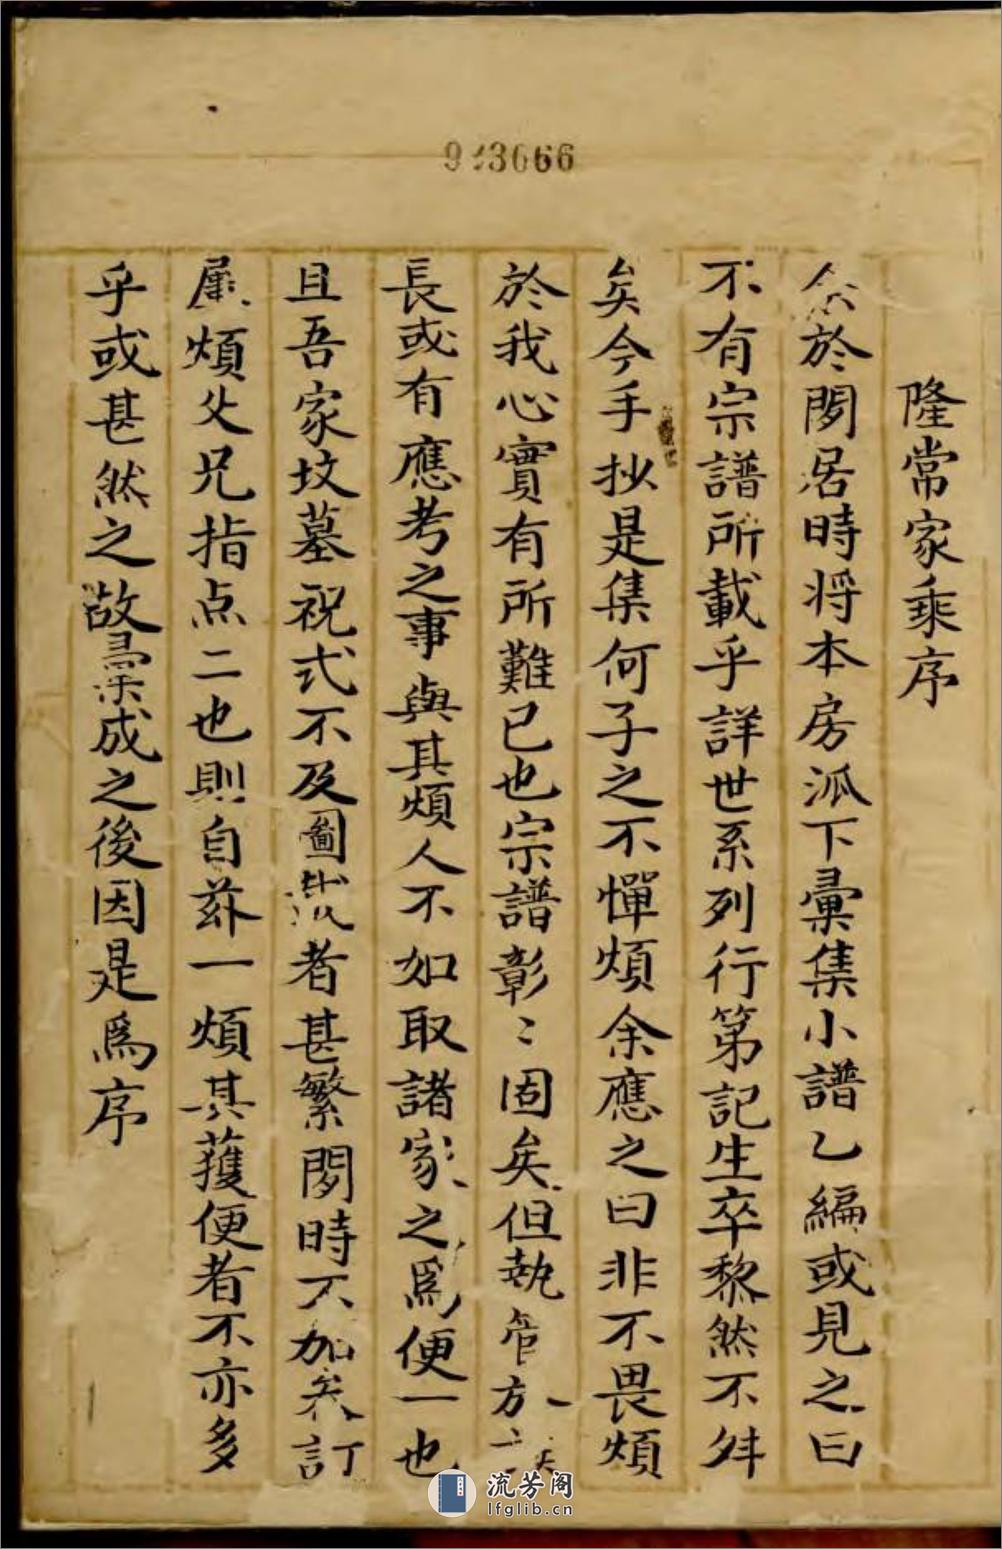 923666
隆常家乘序
余於閒居時将本房派下彙集小譜乙編或見之曰
不有宗譜所載乎詳世系列行第記生卒黎然不舛
矣今手抄是集何子之不憚煩余應之曰非不畏煩
於我心實有所難已也宗譜彰〻固矣但執管方
長或有應考之事與其煩人不如取諸家之爲便一也
且吾家坟墓祝式不及圖者甚繁閒時不加訂
屡煩父兄指点二也則自兹一煩其獲便者不亦多
乎或甚然之故彙成之後因是爲序
流芳阁
lfglib.cn